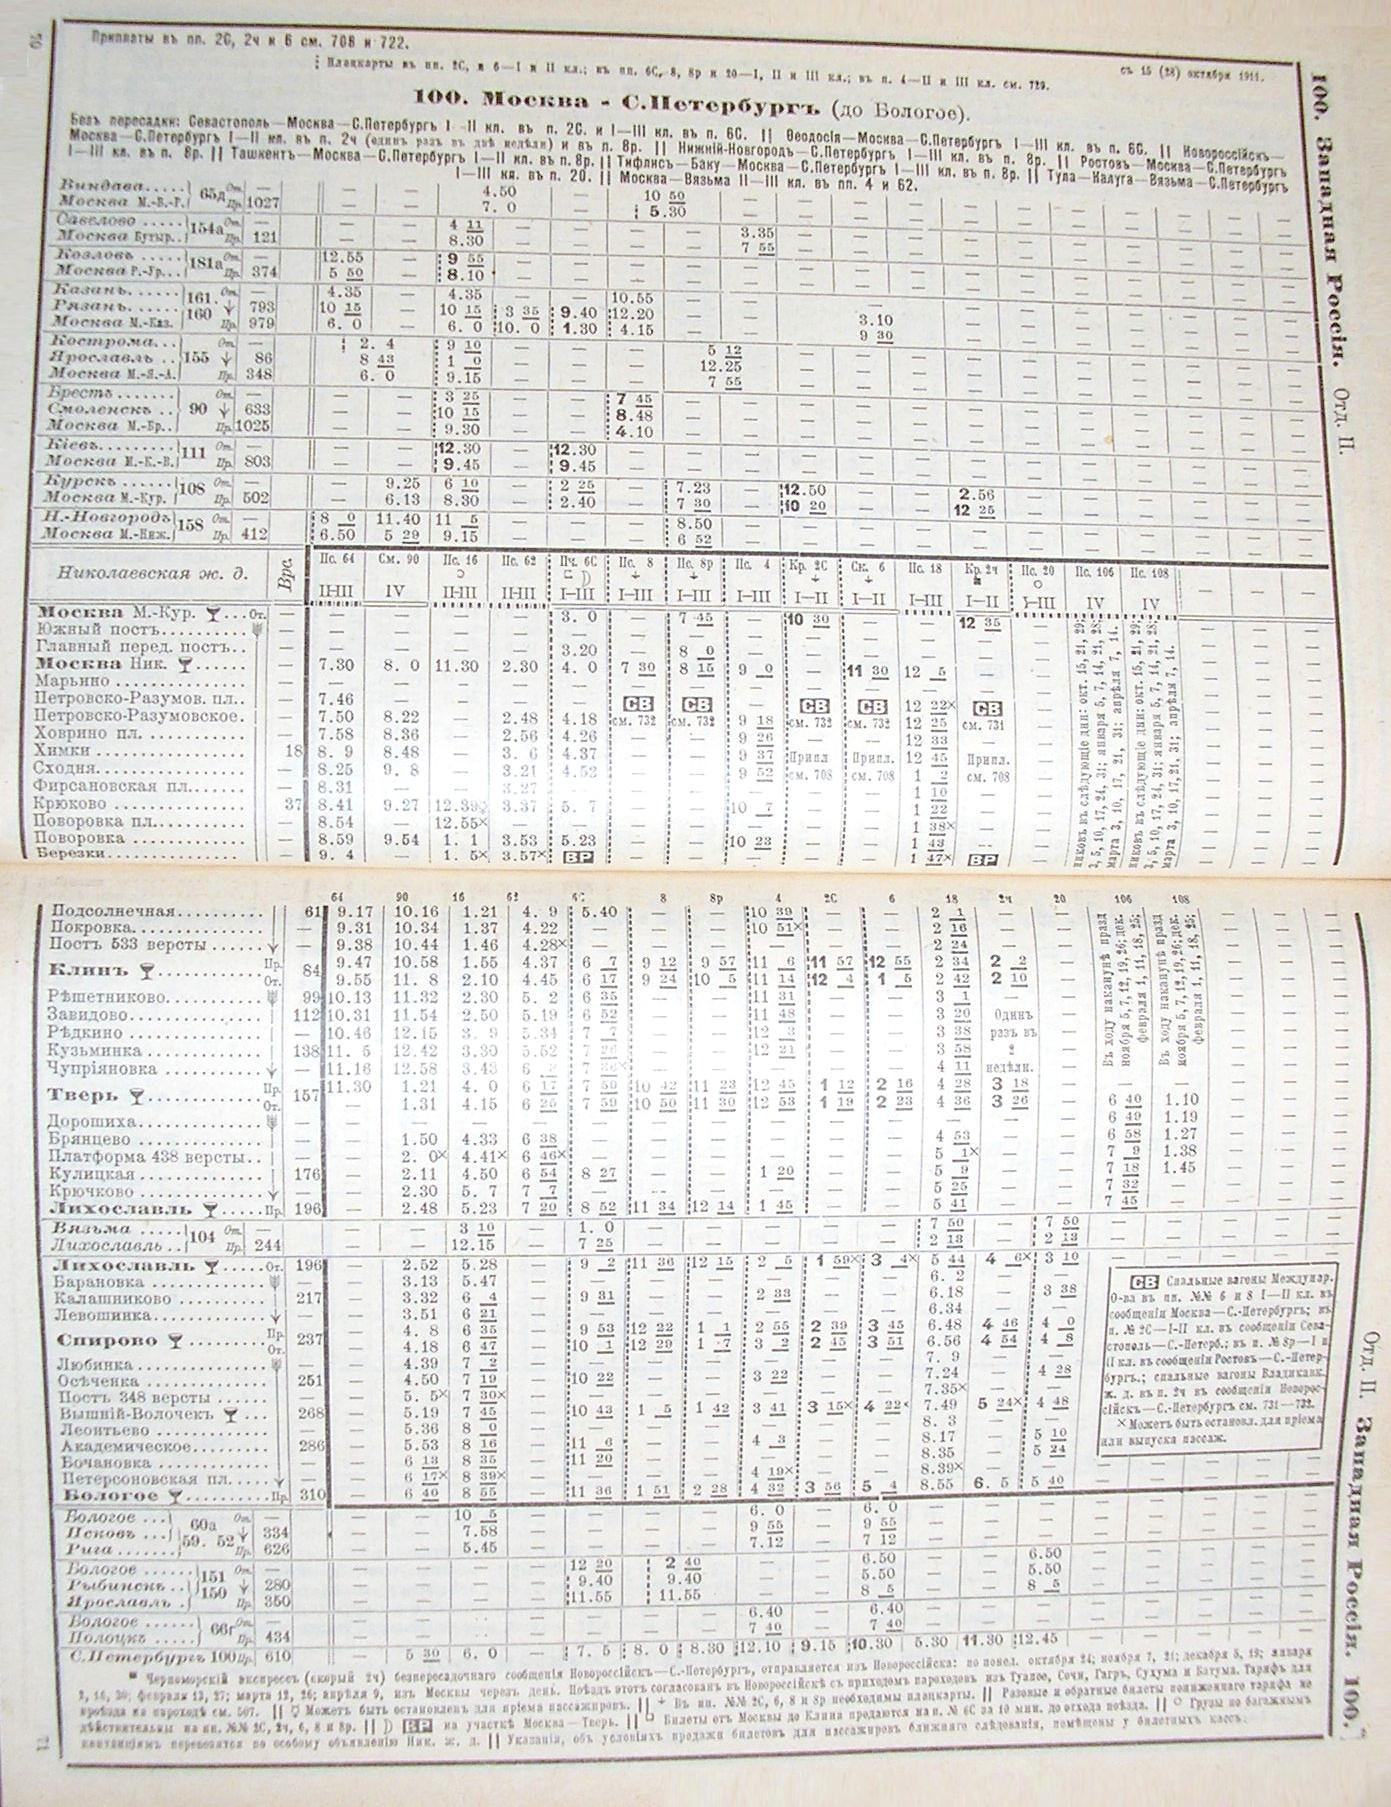 Приплаты въ пп. 2С, 2ч и 6 см. 708 и 722.
Плацкарты въ пп. 2С, и 6—I и II кл.; въ пп. 6С, 8, 8р и 20—I, II и III кл.; въ п. 4—II и III кл. см. 729.
съ 15 (28) октября 1911.
100. Москва - С.Петербургъ (до Бологое).
Безъ пересадки: Севастополь—Москва—С.Петербургъ I—II кл. въ п. 2С. и I—III кл. въ п. 6С. || Ѳеодосія—Москва—С.Петербургъ I—III кл. въ п. 6С. || Новороссійскъ—
Москва—С.Петербургъ I—II кл. въ п. 2ч (одинъ разъ въ двѣ недѣли) и въ п. 8р. || Нижній-Новгородъ—С.Петербургъ I—III кл. въ п. 8р. || Ростовъ—Москва—С.Петербургъ
I—III кл. въ п. 8р. || Ташкентъ—Москва—С.Петербургъ I—II кл. въ п. 8р. || Тифлисъ—Баку—Москва—С.Петербургъ I—III кл. въ п. 8р. || Тула—Калуга—Вязьма—С.Петербургъ
I—III кл. въ п. 20. || Москва—Вязьма II—III кл. въ пп. 4 и 62.
100. Западная Россія. Отд. II.
Виндава 65д От. — — — 4.50 — 10 50 — — — — — — —
Москва М.-В.-Р. Пр. 1027 — — 7. 0 — 5.30 — — — — — — —
Савелово 154а От. — — — 4 11 — — — 3.35 — — — — —
Москва Бутыр. Пр. 121 — — 8.30 — — — 7 55 — — — — —
Козловъ 181а От. — 12.55 — 9 55 — — — — — — — —
Москва Р.-Ур. Пр. 374 5 50 — 8.10 — — — — — — — —
Казань 161. От. — 4.35 — 4.35 — — 10.55 — — — — — —
Рязань 160 793 10 15 — 10 15 3 35 9.40 12.20 — — 3.10 — — —
Москва М.-Каз. Пр. 979 6. 0 — 6. 0 10. 0 1.30 4.15 — — 9 30 — — —
Кострома 155 От. — 2. 4 9 10 — — — 5 12 — — — — —
Ярославль 86 8 43 1 0 — — — 12.25 — — — — —
Москва М.-Я.-А. Пр. 348 6. 0 9.15 — — — 7 55 — — — — —
Брестъ 90 От. — — — 3 25 — — 7 45 — — — — — —
Смоленскъ 633 — — 10 15 — — 8.48 — — — — — —
Москва М.-Бр. Пр. 1025 — — 9.30 — — 4.10 — — — — — —
Кіевъ 111 От. — — — 12.30 — 12.30 — — — — — — —
Москва М.-К.-В. Пр. 803 — — 9.45 — 9.45 — — — — — — —
Курскъ 108 От. — — 9.25 6 10 — 2 25 — 7.23 — 12.50 — — 2.56 —
Москва М.-Кур. Пр. 502 — 6.13 8.30 — 2.40 — 7 30 — 10 20 — — 12 25 —
Н.-Новгородъ 158 От. — 8 0 11.40 11 5 — — — 8.50 — — — — —
Москва М.-Ниж. Пр. 412 6.50 5 29 9.15 — — — 6 52 — — — — —
Николаевская ж. д. Врс. Пс. 64 См. 90 Пс. 16 Пс. 62 Пч. 6С Пс. 8 Пс. 8р Пс. 4 Кр. 2С Ск. 6 Пс. 18 Кр. 2ч Пс. 20 Пс. 106 Пс. 108
II-III IV II-III II-III I—III I—III I—III I—III I—II I—II I—III I—II I-III IV IV
Москва М.-Кур. От. — — — — — 3. 0 — 7 45 — 10 30 — — 12 35 —
Южный постъ — — — — — — — — — — — — — —
Главный перед. постъ — — — — — 3.20 — 8 0 — — — — — —
Москва Ник. — 7.30 8. 0 11.30 2.30 4. 0 7 30 8 15 9 0 — 11 30 12 5 — —
Марьино — — — — — — — — — — — — — —
Петровско-Разумов. пл. — 7.46 — — — — СВ СВ — СВ СВ 12 22× СВ —
Петровско-Разумовское. — 7.50 8.22 — 2.48 4.18 см. 732 см. 732 9 18 см. 732 см. 732 12 25 см. 731 —
Ховрино пл. — 7.58 8.36 — 2.56 4.26 — — 9 26 — — 12 33 — —
Химки 18 8. 9 8.48 — 3. 6 4.37 — — 9 37 Припл. Припл. 12 45 Припл. —
Сходня — 8.25 9. 8 — 3.21 4.52 — — 9 52 см. 708 см. 708 1 2 см. 708 —
Фирсановская пл. — 8.31 — — 3.27 — — — — — — 1 10 — —
Крюково 37 8.41 9.27 12.39 3.37 5. 7 — — 10 7 — — 1 22 — —
Поворовка пл. — 8.54 — 12.55× — — — — — — — 1 38× — —
Поворовка — 8.59 9.54 1. 1 3.53 5.23 — — 10 23 — — 1 43 — —
Березки — 9. 4 — 1. 5× 3.57× ВР — — — — — 1 47× ВР —
64 90 16 62 6С 8 8р 4 2С 6 18 2ч 20 106 108
Подсолнечная 61 9.17 10.16 1.21 4. 9 5.40 — — 10 39 — — 2 1 — —
Покровка — 9.31 10.34 1.37 4.22 — — — 10 51× — — 2 16 — —
Постъ 533 версты — 9.38 10.44 1.46 4.28× — — — — — — 2 24 — —
Клинъ Пр. 84 9.47 10.58 1.55 4.37 6 7 9 12 9 57 11 6 11 57 12 55 2 34 2 2 —
От. 9.55 11. 8 2.10 4.45 6 17 9 24 10 5 11 14 12 4 1 5 2 42 2 10 —
Рѣшетниково 99 10.13 11.32 2.30 5. 2 6 35 — — 11 31 — — 3 1 — —
Завидово 112 10.31 11.54 2.50 5.19 6 52 — — 11 48 — — 3 20 Одинъ —
Рѣдкино — 10.46 12.15 3. 9 5.34 7 7 — — 12 3 — — 3 38 разъ въ —
Кузьминка 138 11. 5 12.42 3.30 5.52 7 26 — — 12 21 — — 3 58 2 —
Чупріяновка — 11.16 12.58 3.43 — — — — — — 4 11 недѣли. —
Тверь Пр. 157 11.30 1.21 4. 0 6 17 7 50 10 42 11 23 12 45 1 12 2 16 4 28 3 18 — —
От. — 1.31 4.15 6 25 7 59 10 50 11 30 12 53 1 19 2 23 4 36 3 26 — 6 40 1.10
Дорошиха — — — — — — — — — — — — — — 6 49 1.19
Брянцево — — 1.50 4.33 6 38 — — — — — — 4 53 — — 6 58 1.27
Платформа 438 версты — — 2. 0× 4.41× 6 46× — — — — — — 5 1× — — 7 9 1.38
Кулицкая 176 — 2.11 4.50 6 54 8 27 — — 1 20 — — 5 9 — — 7 18 1.45
Крючково — — 2.30 5. 7 7 7 — — — — — — 5 25 — — 7 32
Лихославль Пр. 196 — 2.48 5.23 7 20 8 52 11 34 12 14 1 45 — — 5 41 — — 7 45
Вязьма 104 От. — — — 3 10 — 1. 0 — — — — — 7 50 — 7 50 — —
Лихославль Пр. 244 — — 12.15 — 7 25 — — — — — 2 13 — 2 13 — —
Лихославль От. 196 — 2.52 5.28 — 9 2 11 36 12 15 2 5 1 59× 3 4× 5 44 4 6× 3 10
Барановка — — 3.13 5.47 — — — — — — — 6. 2 — —
Калашниково 217 — 3.32 6 4 — 9 31 — — 2 33 — — 6.18 — 3 38
Левошинка — — 3.51 6 21 — — — — — — — 6.34 — —
Спирово Пр. 237 — 4. 8 6 35 — 9 53 12 22 1 1 2 55 2 39 3 45 6.48 4 46 4 0
От. — 4.18 6 47 — 10 1 12 29 1 7 3 2 2 45 3 51 6.56 4 54 4 8
Любинка — — 4.39 7 2 — — — — — — — 7. 9 — —
Осѣченка 251 — 4.50 7 19 — 10 22 — — 3 22 — — 7.24 — 4 28
Постъ 348 версты — — 5. 5× 7 30× — — — — — — — 7.35× — —
Вышній-Волочекъ 268 — 5.19 7 45 — 10 43 1 5 1 42 3 41 3 15× 4 22× 7.49 5 24× 4 48
Леонтьево — — 5.36 8 0 — — — — — — — 8. 3 — —
Академическое 286 — 5.53 8 16 — 11 6 — — 4 3 — — 8.17 — 5 10
Бочановка — — 6 13 8 35 — 11 20 — — — — — 8.35 — 5 24
Петерсоновская пл. — — 6 17× 8 39× — — — — 4 19× — — 8.39× — —
Бологое Пр. 310 — 6 40 8 55 — 11 36 1 51 2 28 4 32 3 56 5 4 8.55 6. 5 5 40
СВ Спальные вагоны Междунар.
О-ва въ пп. №№ 6 и 8 I—II кл. въ
сообщеніи Москва—С.-Петербургъ; въ
п. № 2С—I-II кл. въ сообщеніи Сева-
стополь—С.-Петерб.; въ п. № 8р—I и
II кл. въ сообщеніи Ростовъ—С.-Петер-
бургъ.; спальные вагоны Владикавк.
ж. д. въ п. 2ч въ сообщеніи Новорос-
сійскъ—С.-Петербургъ см. 731—732.
× Можетъ быть остановл. для пріема
или выпуска пассаж.
Бологое 60а От. — — — 10 5 — — — — 6. 0 — 6. 0 — — —
Псковъ 59. 52 334 — — 7.58 — — — — 9 55 — 9 55 — — —
Рига Пр. 626 — — 5.45 — — — — 7.12 — 7 12 — — —
Бологое 151 От. — — — — — 12 20 2 40 — — 6.50 — — 6.50
Рыбинскъ 150 280 — — — — 9.40 9.40 — — 5.50 — — 5.50
Ярославль Пр. 350 — — — — 11.55 11.55 — — 8 5 — — 8 5
Бологое 66г От. — — — — — — — — 6.40 — 6.40 — — —
Полоцкъ Пр. 434 — — — — — — — 7 40 — 7 40 — — —
С.Петербургъ 100 Пр. 610 — 5 30 6. 0 — 7. 5 8. 0 8.30 12.10 9.15 10.30 5.30 11.30 12.45
Черноморскій экспрессъ (скорый 2ч) безпересадочнаго сообщенія Новороссійскъ—С.-Петербургъ, отправляется изъ Новороссійска: по понед. октября 24; ноября 7, 21; декабря 5, 19; января
2, 16, 30; февраля 13, 27; марта 12, 26; апрѣля 9, изъ Москвы черезъ день. Поѣздъ этотъ согласованъ въ Новороссійскѣ съ приходомъ пароходовъ изъ Туапсе, Сочи, Гагръ, Сухума и Батума. Тарифъ для
проѣзда на пароходѣ см. 507. || Можетъ быть остановленъ для пріема пассажировъ. || Въ пп. №№ 2С, 6, 8 и 8р необходимы плацкарты. || Разовые и обратные билеты пониженнаго тарифа не
дѣйствительны на пп. №№ 2С, 2ч, 6, 8 и 8р. || ВР на участкѣ Москва—Тверь. || Билеты отъ Москвы до Клина продаются на п. № 6С за 10 мин. до отхода поѣзда. || Грузы по багажнымъ
квитанціямъ перевозятся по особому объявленію Ник. ж. д. || Указанія, объ условіяхъ продажи билетовъ для пассажировъ ближняго слѣдованія, помѣщены у билетныхъ кассъ.
Отд. II. Западная Россія. 100.